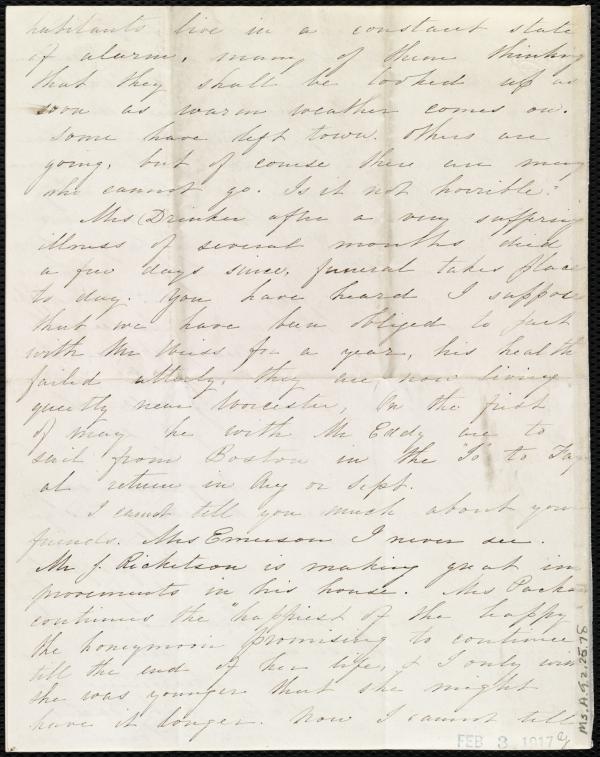 habitants live in a constant state
of alarm, many of them thinking
that they shall be locked up as
soon as warm weather comes on.
Some have left town. Others are
going, but of course there are many
who cannot go. Is it not horrible?
Mrs Drinker after a very suffering
illness of several months died
a few days since, funeral takes place
to day. You have heard I suppose
that we have been obliged to part
with Mr Weiss for a year, his health
failed utterly, they are now living
quietly near Worcester, On the first
of may he with Mr Eddy are to
sail from Boston in the "Io" to Fay
al return in Aug or Sept.
I cannot tell you much about your
friends. Mrs Emerson I never see.
Mr J. Ricketson is making great im
provements in his house. Mrs
continues the "happiest of the happy
the honeymoon promising to continue
till the end of her life, & I only wish
she was younger that she might
have it longer. Now I cannot tell
Ms.A.9.2.25.78
FEB 3 1917